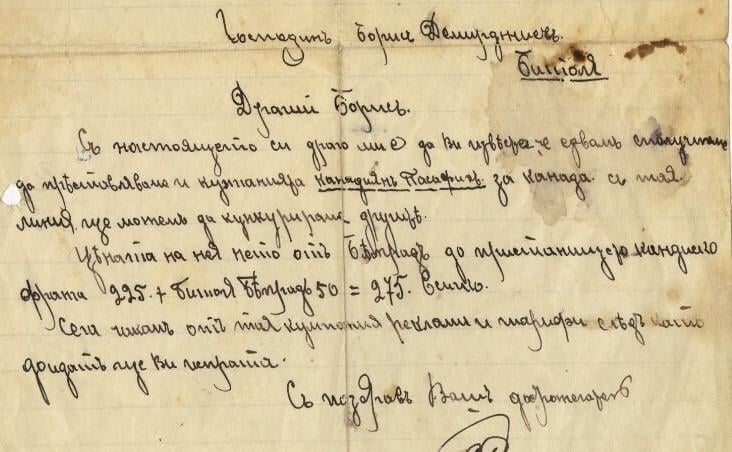 Господинъ Борисъ Демирджиевъ.
Битоля
Драгий Борисъ.
Съ настоящето си драго ми е да Ви извѣстя че едвамъ сполучихме
да прѣставляваме и кумпанията канадиянъ Пасификъ за Канада. съ тая
линия ще можемъ да кункурираме другитѣ.
Цѣната на нея нето отъ Бѣлградъ до пристанището кандиско
франта 225. + Битоля Бѣлградъ 50 = 275. Всичко.
Сега чакамъ отъ тая кумпания реклами и тарифи слѣдъ като
дойдатъ ще Ви испратя.
Съ поздравъ Вашъ